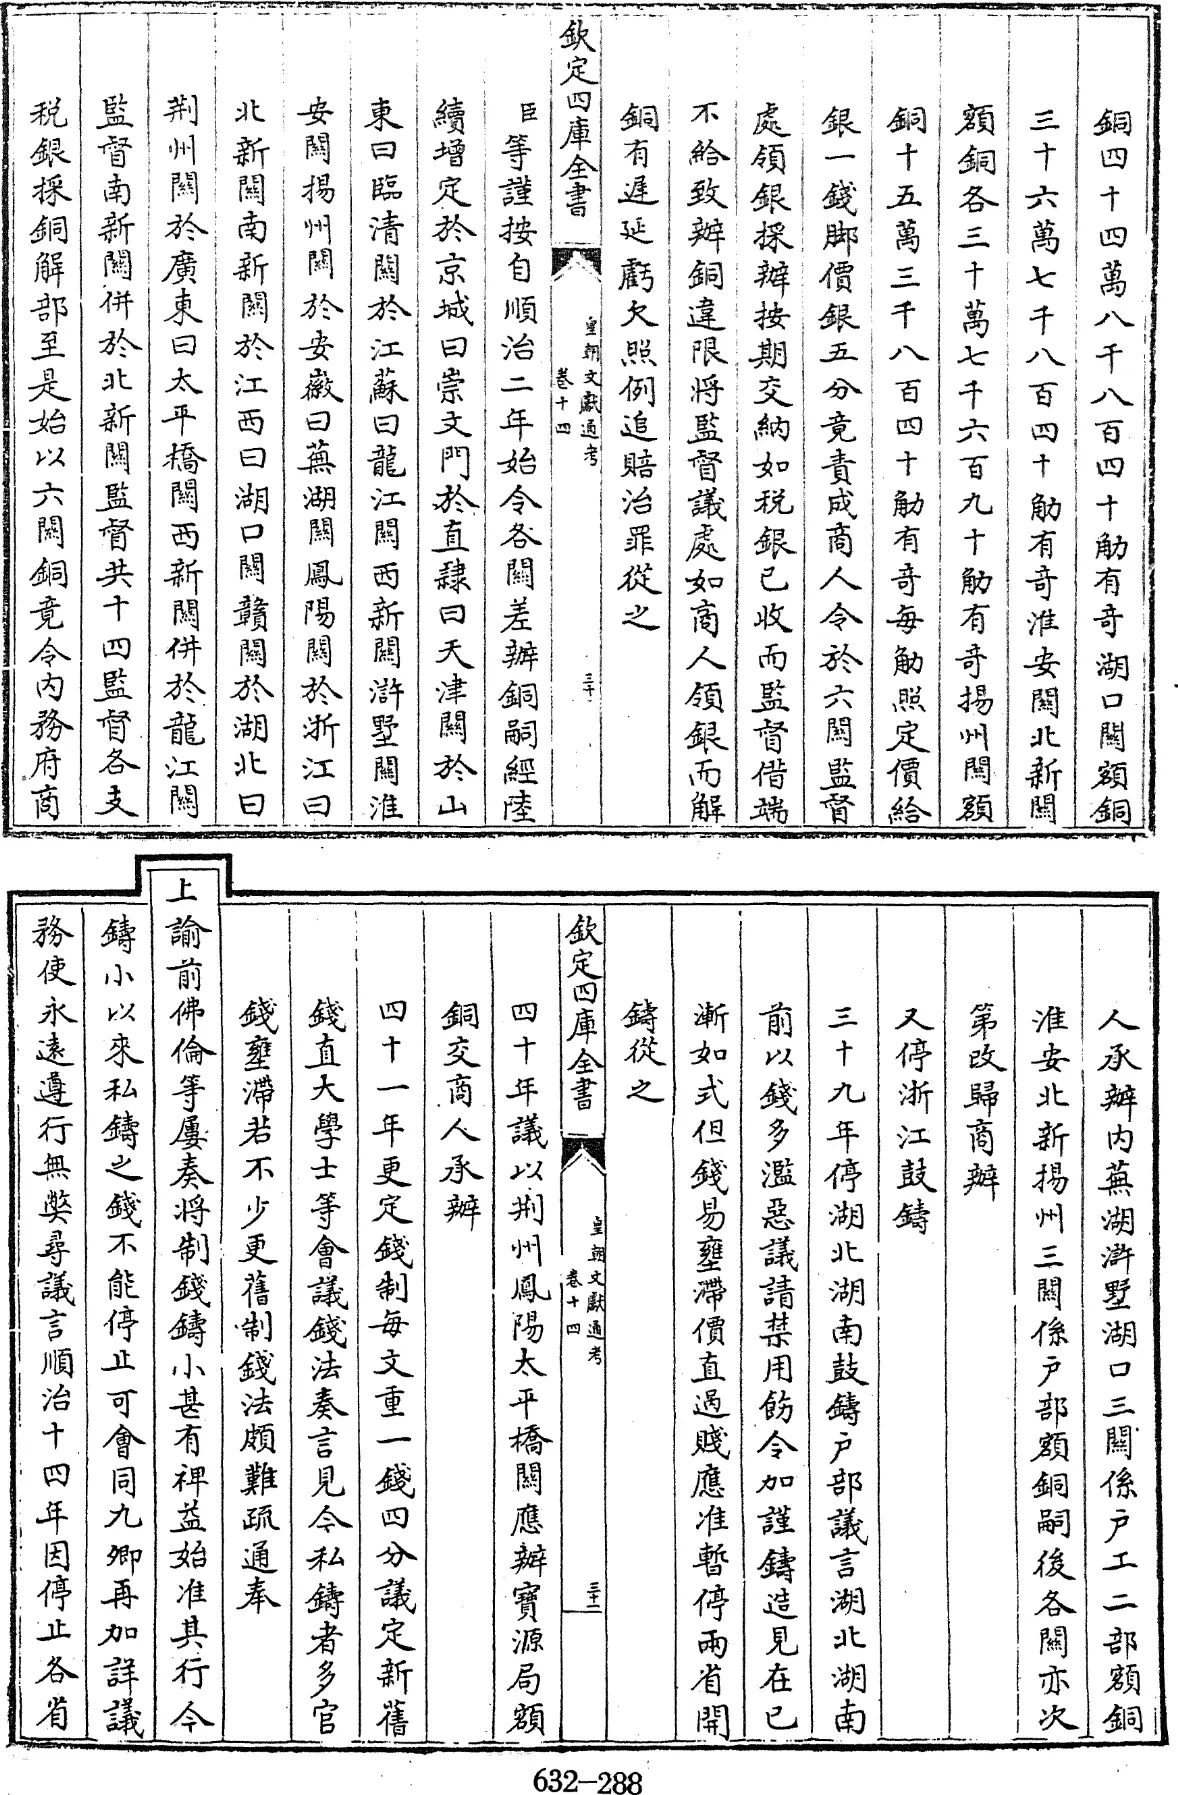 銅四十四萬八千八百四十觔有奇湖口關額銅
三十六萬七千八百四十觔有奇淮安關北新關
額銅各三十萬七千六百九十觔有奇揚州關額
銅十五萬三千八百四十觔有奇每觔照定價給
銀一錢脚價銀五分竟責成商人令於六關監督
處領銀採辦按期交納如稅銀已收而監督借端
不給致辦銅違限將監督議處如商人領銀而解
銅有遲延虧欠照例追賠治罪從之
欽定四庫全書
皇朝文獻通考
卷十四
三十
臣等謹按自順治二年始令各關差辦銅嗣經陸
續增定於京城曰崇文門於直隸曰天津關於山
東曰臨清關於江蘇曰龍江關西新關滸墅關淮
安關揚州關於安徽曰蕪湖關鳳陽關於浙江曰
北新關南新關於江西曰湖口關贛關於湖北曰
荆州關於廣東曰太平橋關西新關併於龍江關
監督南新關併於北新關監督共十四監督各支
稅銀採銅解部至是始以六關銅竟令內務府商
人承辦內蕪湖滸墅湖口三關係戶工二部額銅
淮安北新揚州三關係戶部額銅嗣後各關亦次
第改歸商辦
又停浙江鼓鑄
三十九年停湖北湖南鼓鑄戶部議言湖北湖南
前以錢多濫惡議請禁用飭令加謹鑄造見在已
漸如式但錢易壅滯價直過賤應准暫停兩省開
鑄從之
欽定四庫全書
皇朝文獻通考
卷十四
三十一
四十年議以荆州鳳陽太平橋關應辦寶源局額
銅交商人承辦
四十一年更定錢制每文重一錢四分議定新舊
錢直大學士等會議錢法奏言見今私鑄者多官
錢壅滯若不少更舊制錢法頗難疏通奉
上諭前佛倫等屢奏將制錢鑄小甚有裨益始准其行今
鑄小以來私鑄之錢不能停止可會同九卿再加詳議
務使永遠遵行無獘尋議言順治十四年因停止各省
632-288